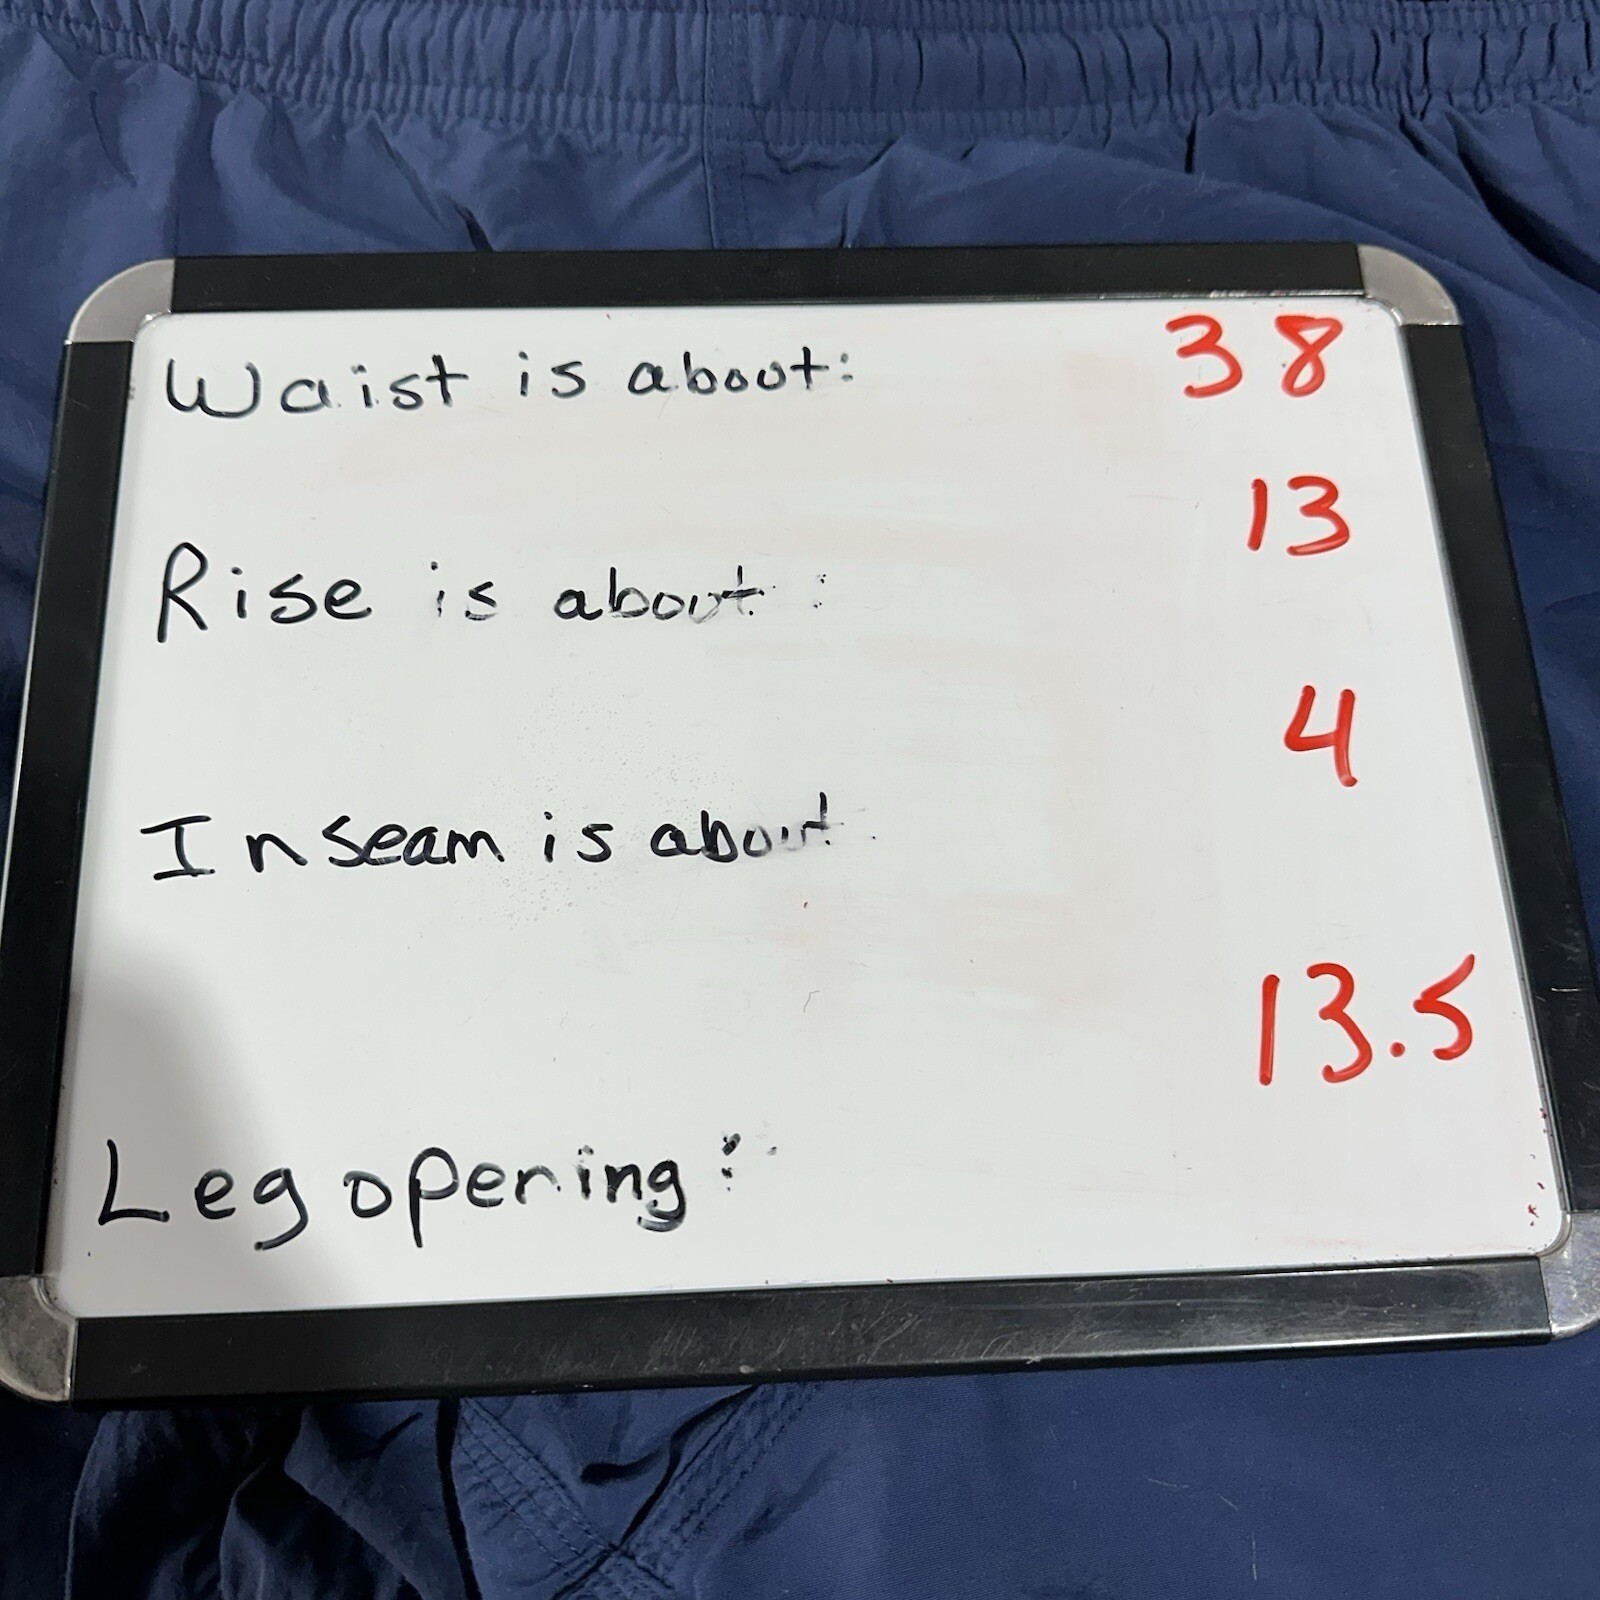 Waist is about: 38
Rise is about: 13
Inseam is about 4
Leg opening: 13.5